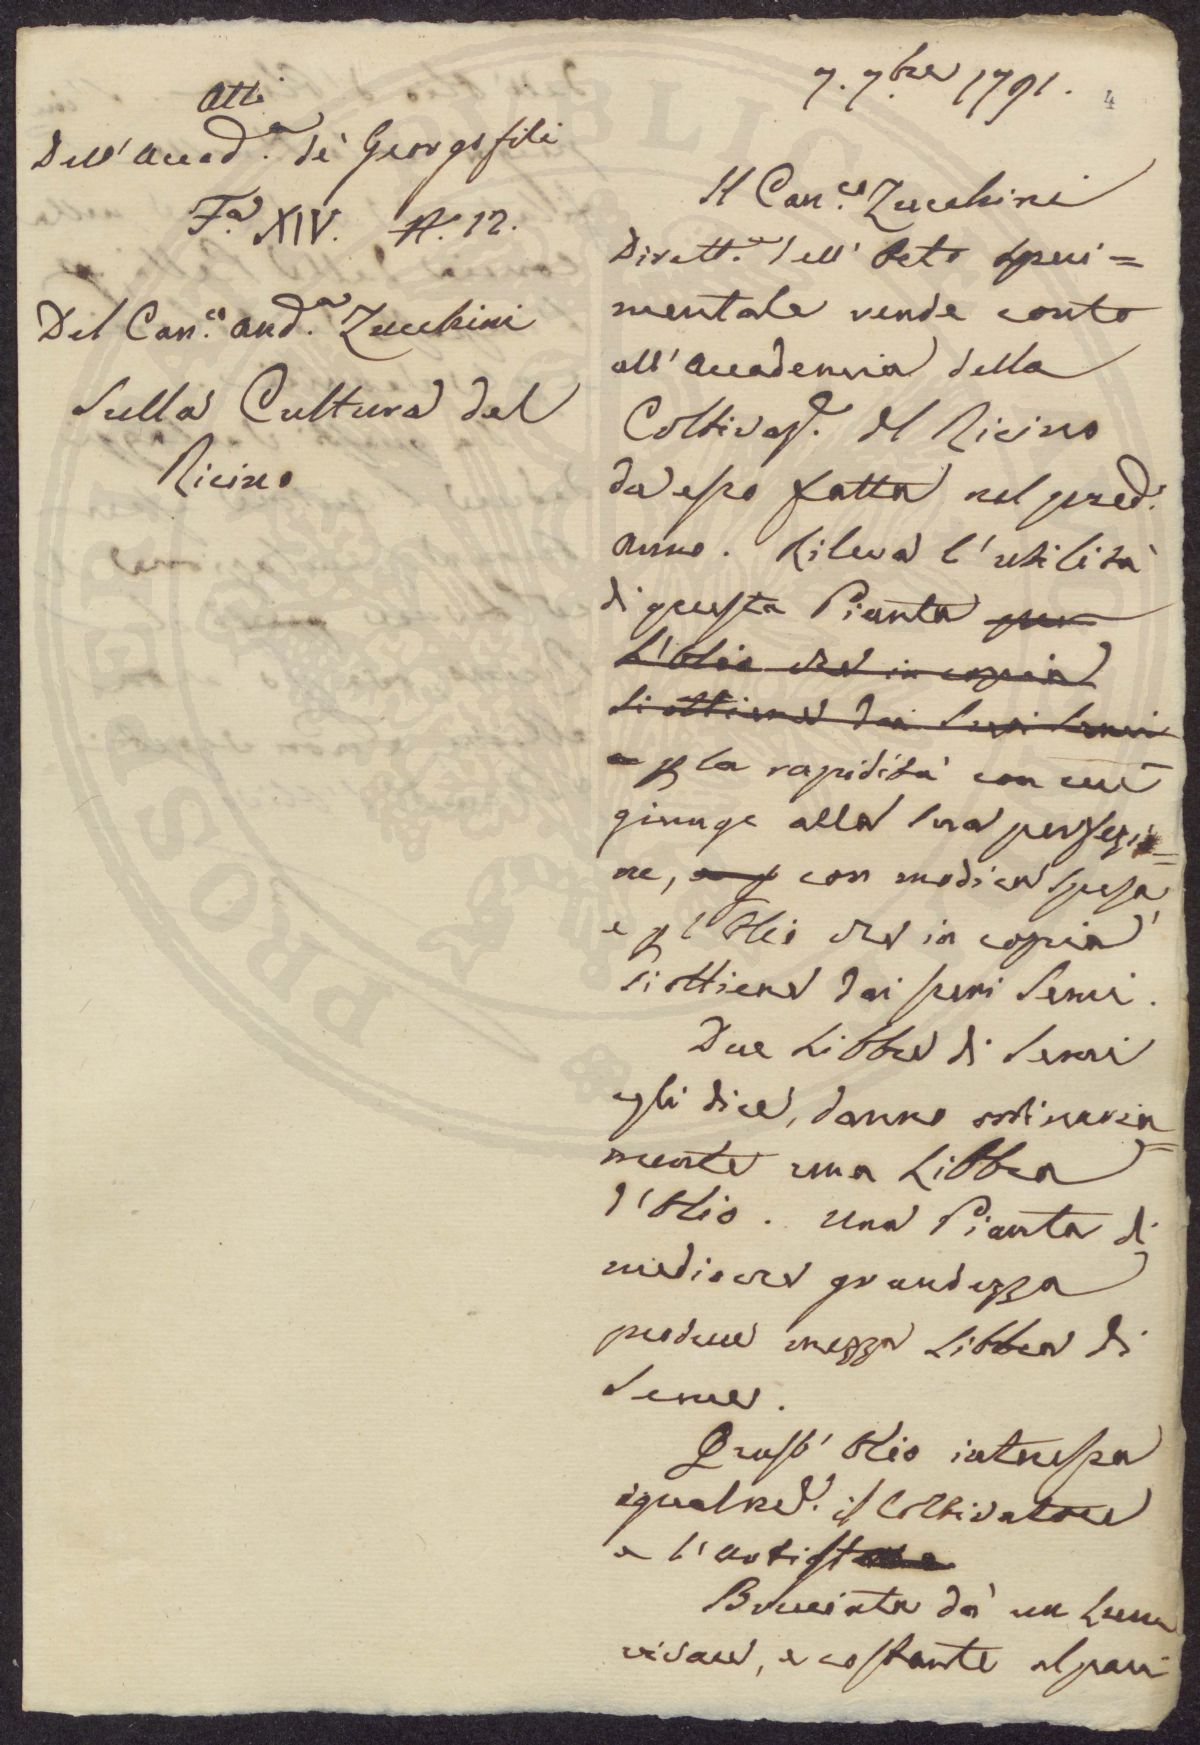 Atti
Dell' Accad.a de' Georgofili
F.a XIV. N. 12.
Del Can.co And.a Zucchini
Sulla Cultura del
Ricino
7. 7bre 1791.
4
Il Can.co Zucchini
Dirett.re dell' Orto speri=
mentale rende conto
all' Accademia della
Coltivaz.e del Ricino
da esso fatta nel pred.o
Anno. Rileva l' utilità
di questa Pianta per
l' Olio che in copia
si ottiene dai suoi semi
e p la rapidità con cui
giunge alla sua perfezio=
ne, e p con modica spesa,
e p l' Olio che in copia
si ottiene dai suoi Semi.
Due Libbre di Semi
egli dice, danno ordinaria=
mente una Libbra
d' Olio. Una Pianta di
mediocre grandezza
produce mezza Libbra di
Seme.
Quest' Olio interessa
egualm.e il Coltivatore
e l' Artista
Bruciato dà un Lume
vivace, e costante al pari
PROSPERITAS PUBLICA